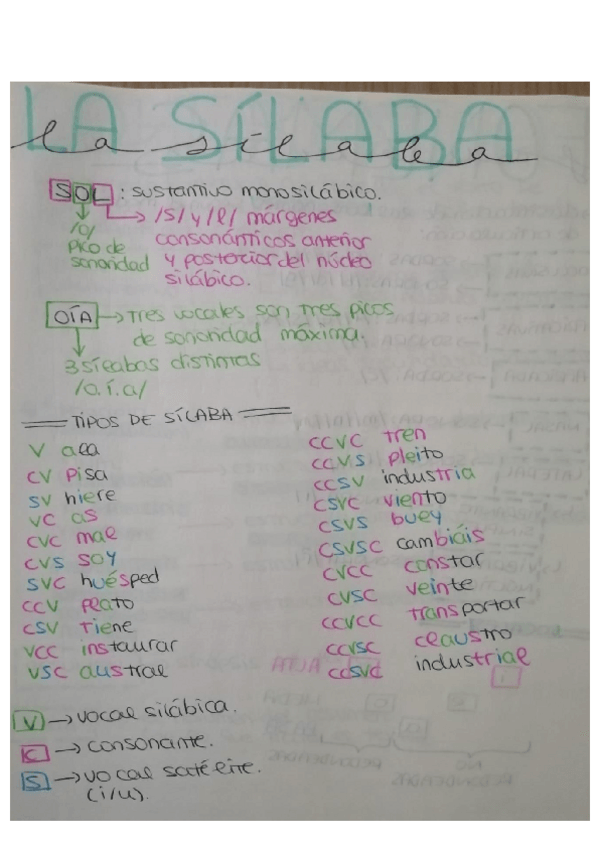 LA SÍLABA
la sílaba
SOL : sustantivo monosilábico.
/o/
pico de
sonoridad
/s/ y /l/ márgenes
consonánticos anterior
y posterior del núcleo
silábico.
OÍA → Tres vocales son tres picos
de sonoridad máxima.
3 sílabas distintas
/o.í.a/
TIPOS DE SÍLABA
V ala
CV pisa
SV hiere
VC as
CVC mal
CVS soy
SVC huésped
CCV plato
CSV Tiene
VCC instaurar
VSC austral
CCVC tren
CCVS pleito
CCSV industria
CSVC viento
CSVS buey
CSVSC cambiáis
CVCC constar
CVSC veinte
CCVCC transportar
CCVSC claustro
CCSVC industrial
V → vocal silábica.
C → consonante.
S → vocal satélite.
(i/u).